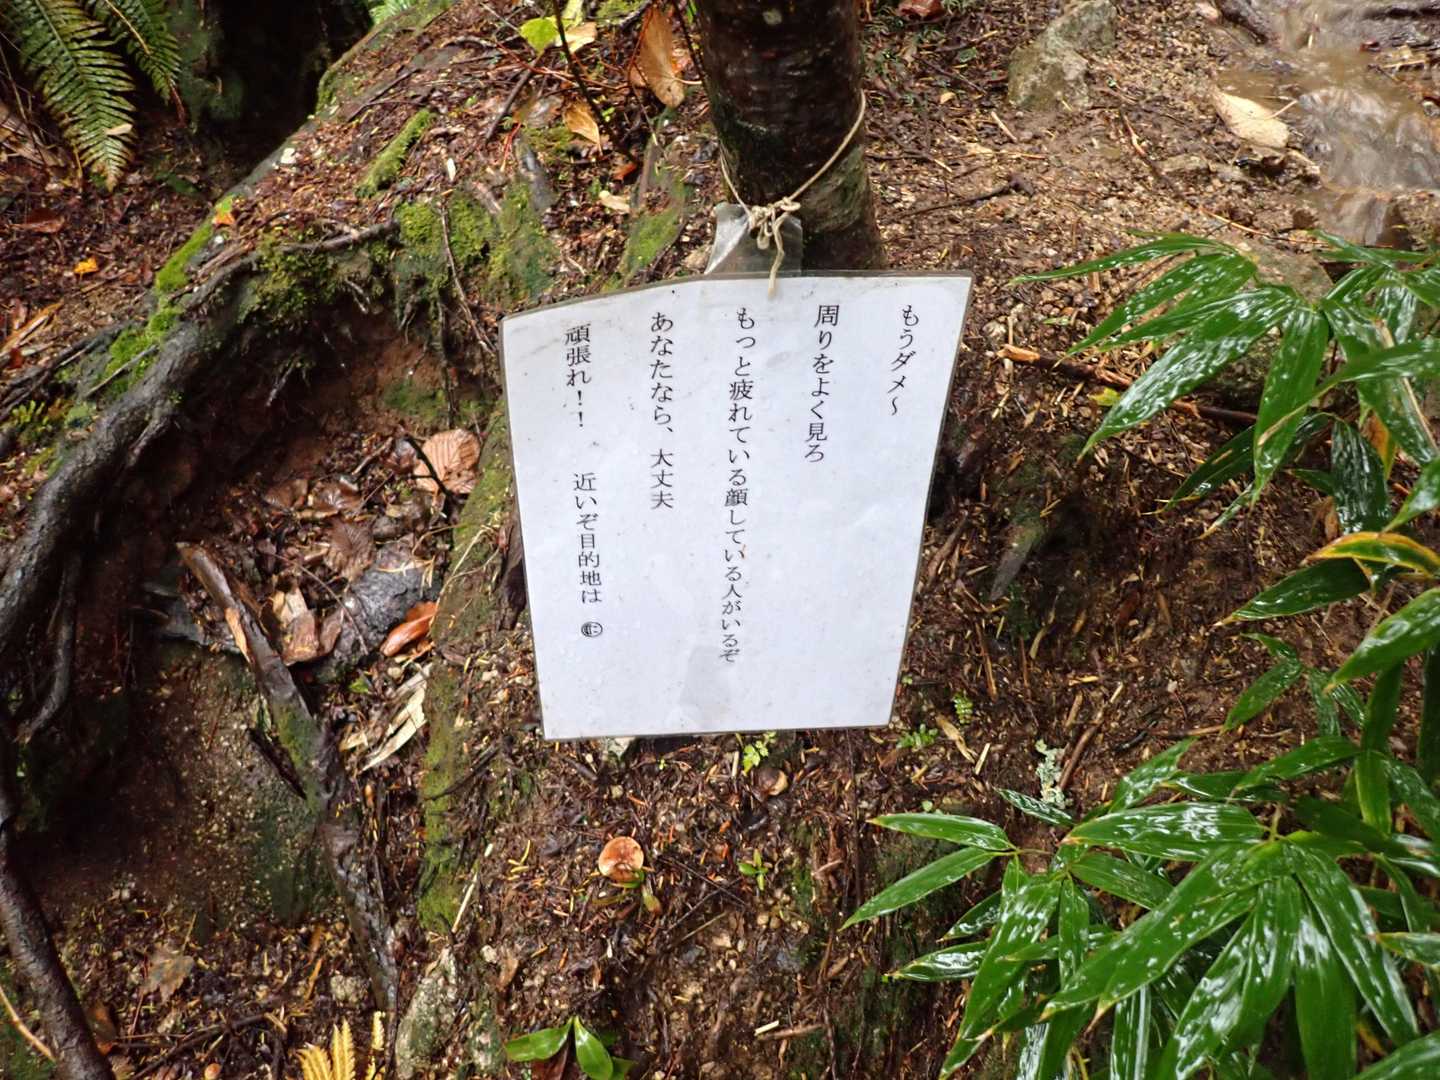 もうダメ～
周りをよく見ろ
もっと疲れている顔している人がいるぞ
あなたなら、大丈夫
頑張れ！！　近いぞ目的地は